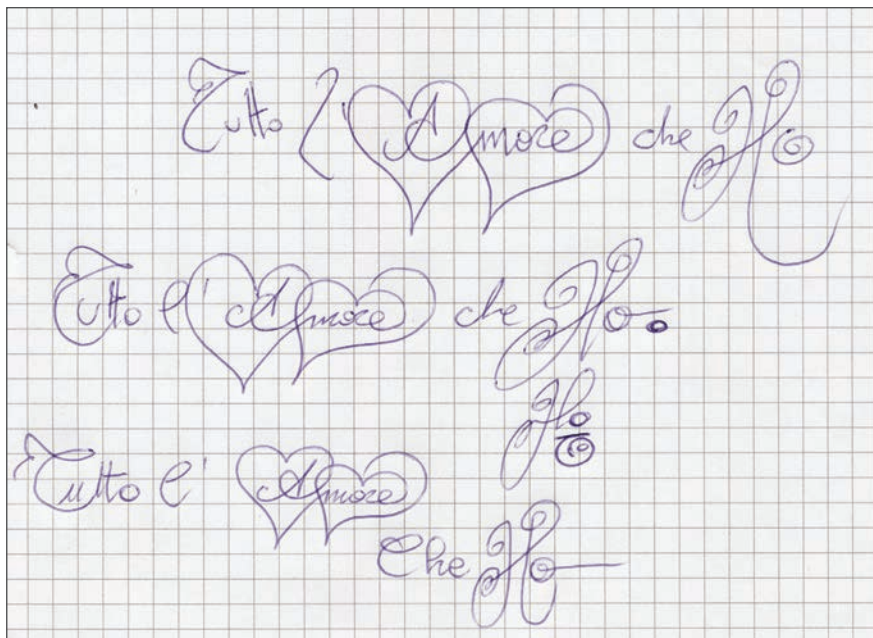 Tutto l'Amore che Ho
Tutto l'Amore che Ho.
Ho
Tutto l'Amore
Che Ho